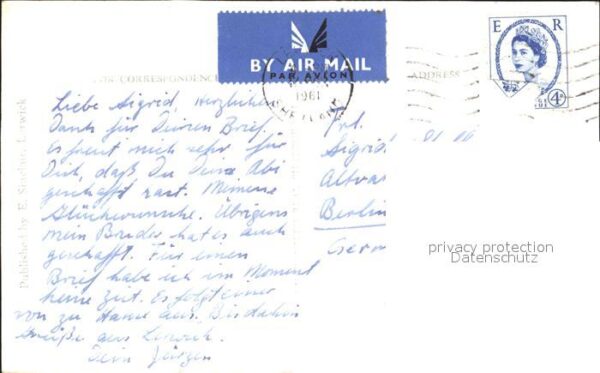 BY AIR MAIL
PAR AVION
E R
4D
1961
FOR CORRESPONDENCE
ADDRESS
Liebe Sigrid, herzlichen
Dank für Deinen Brief.
Es freut mich sehr für
Dich, daß Du Dein Abi
geschafft hast. Meine
Glückwünsche. Übrigens
mein Bruder hat es auch
geschafft. Für einen
Brief habe ich im Moment
keine Zeit. Es folgt einer
von zu Hause aus. Bis dahin
Grüße aus Lerwick.
Dein Jürgen
Frl.
Sigrid
Berlin
Germ
Published by E. Sinclair, Lerwick
privacy protection
Datenschutz